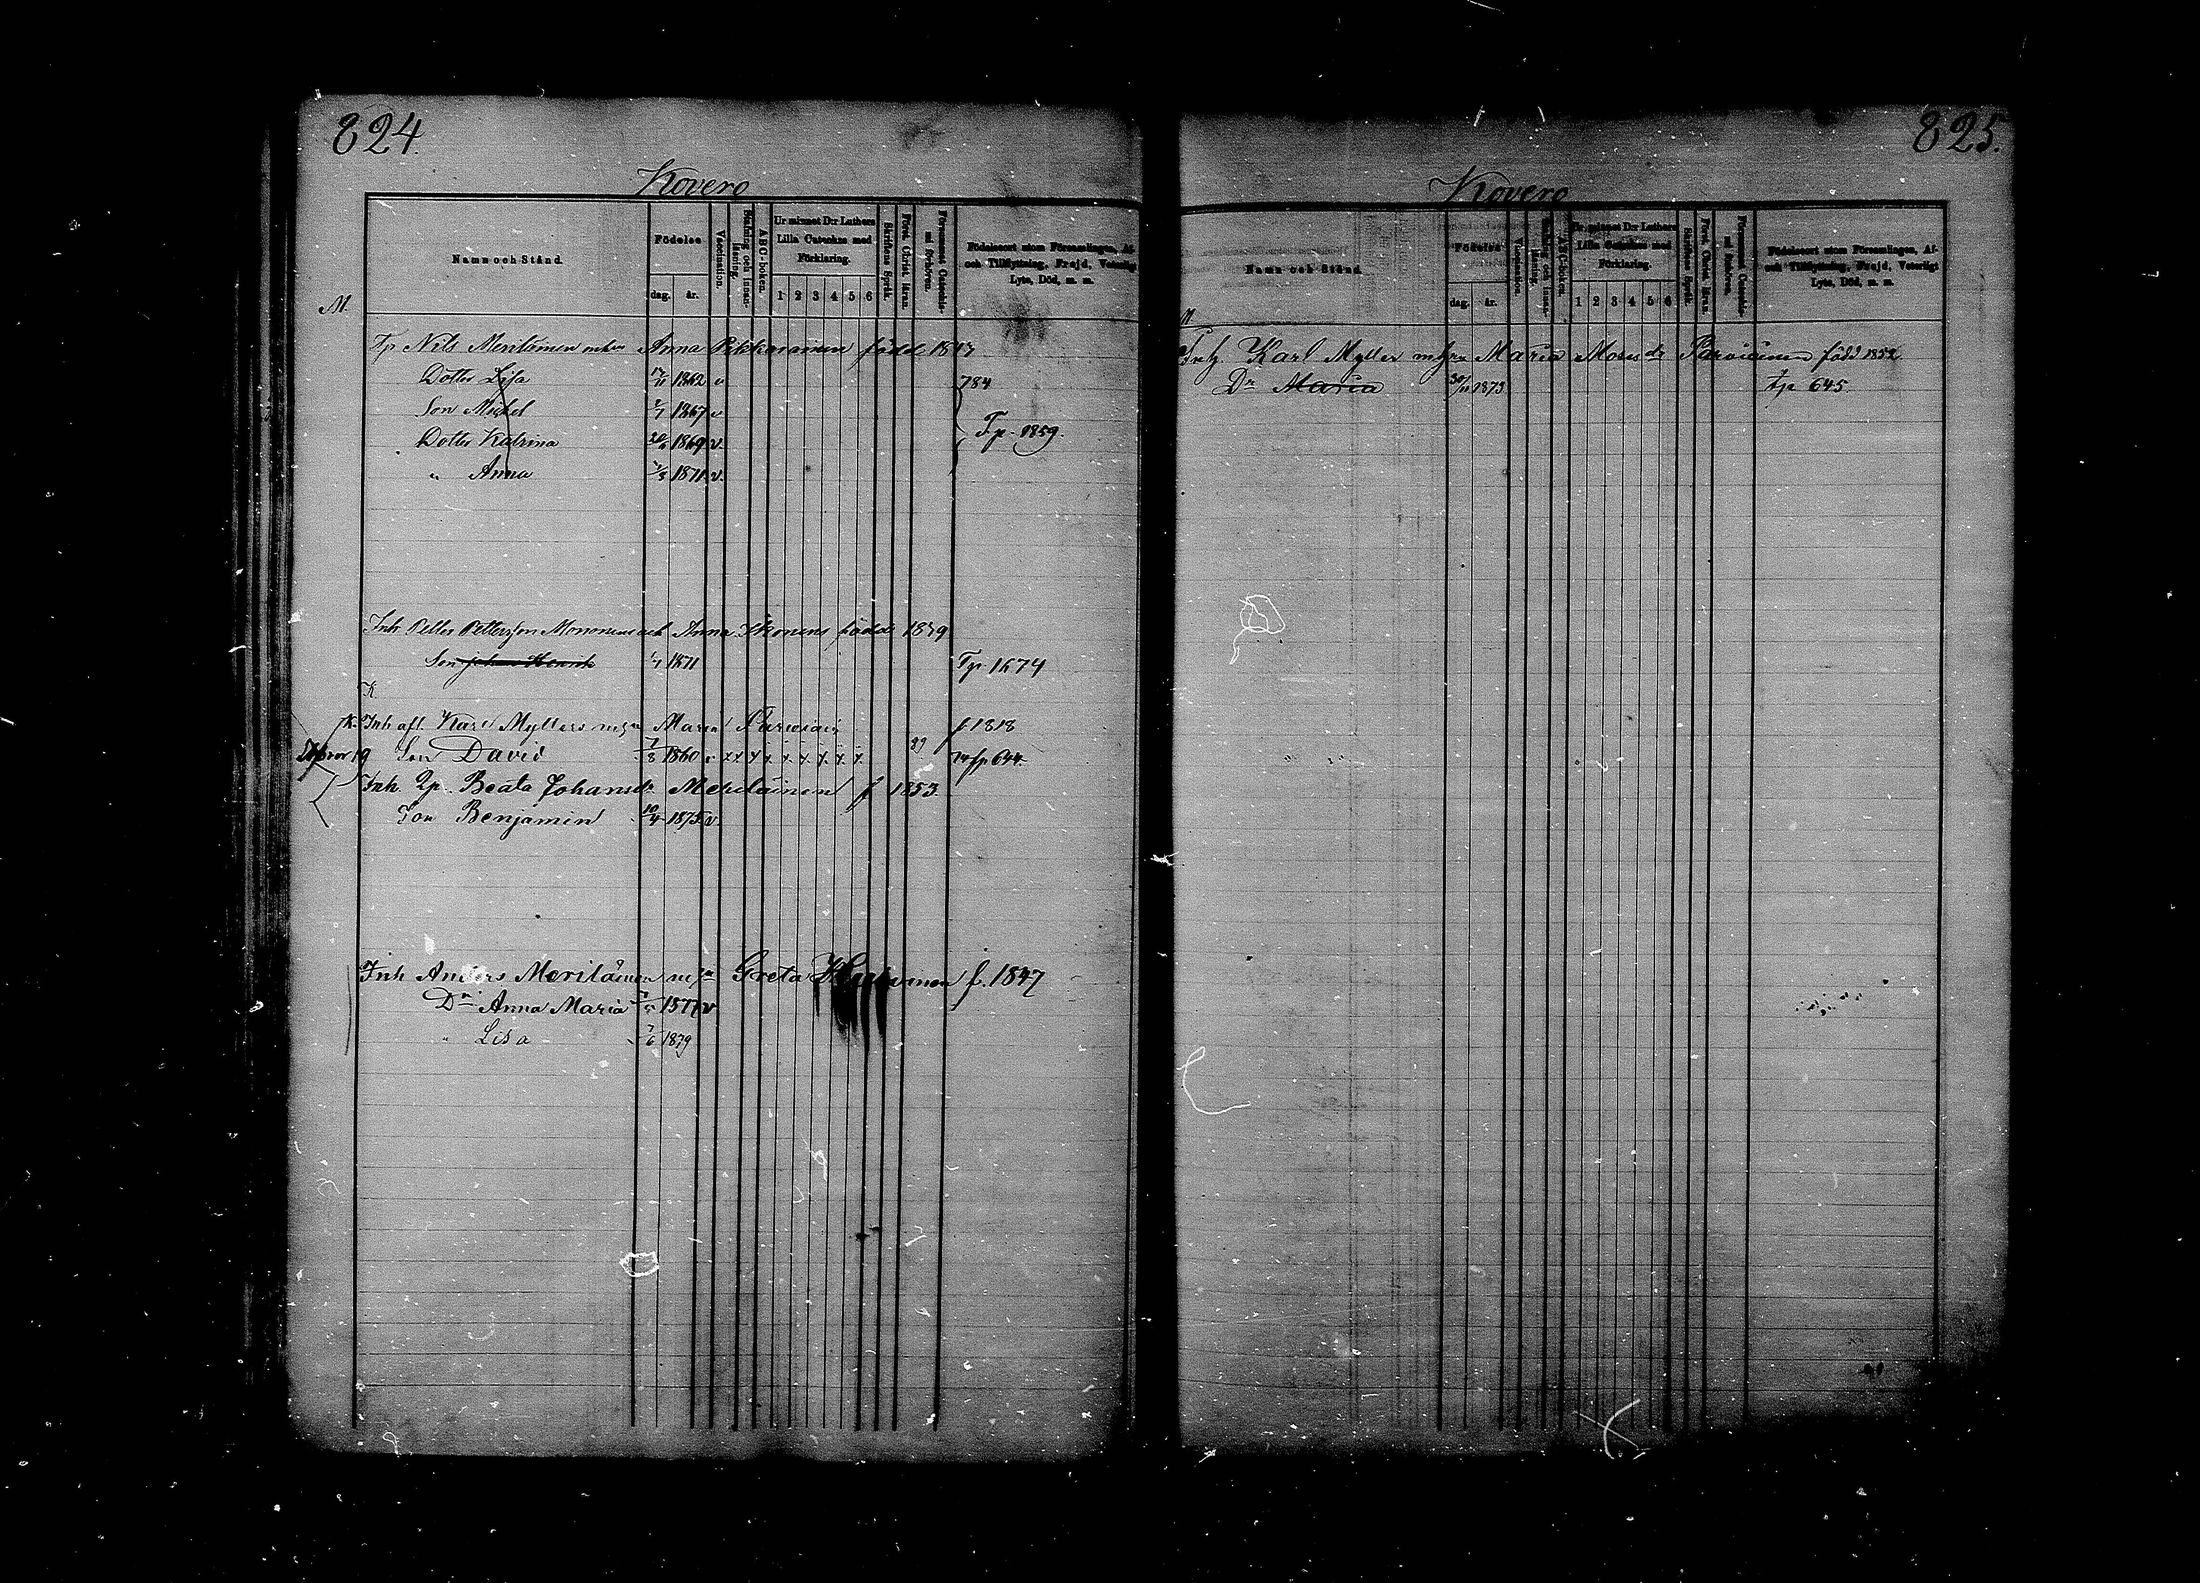 824.
Kovero
Namn och Stånd.
Födelse
dag. år.
Vaccination.
Stafning och innan-läsning.
A B C-boken.
Ur minnet D:r Luthers Lilla Cateches med Förklaring.
1 2 3 4 5 6
Skriftens Språk.
Först. Christ. läran.
Försummat Catechismi förhören.
Födelseort utom Församlingen, Af- och Tillflyttning, Frejd, Vaterligt Lyte, Död, m. m.
M.
Tp Nils Meriläinen Anna Pikkarainen född 1817
Dotter Lisa 1862 v 784
Son Michel 1867 v
Dotter Katrina 1869 v. Tp. 1859.
" Anna 1871 v.
Inh Petter Pettersson Mononens och Anna Ikonens född 1839
Son Johan Henrik 1871 Tp 1674
K.
K. Inh afl. Karl Myllers Maria Parviain f 1818
19 Son David 7/8 1860 v x x x x x x x x x 89 644
Inh. Lp. Beata Johansdr Meriläinen f 1853
Son Benjamin 10/4 1875 v.
Inh Anders Meriläinen Greta f. 1847
Dr Anna Maria 1877 v
" Lisa 7/6 1879
825.
Kovero
Namn och Stånd.
Födelse
dag. år.
Vaccination.
Stafning och innan-läsning.
A B C-boken.
Ur minnet D:r Luthers Lilla Cateches med Förklaring.
1 2 3 4 5 6
Skriftens Språk.
Först. Christ. läran.
Försummat Catechismi förhören.
Födelseort utom Församlingen, Af- och Tillflyttning, Frejd, Vaterligt Lyte, Död, m. m.
M
Inh. Karl Myller Maria Moses dr Parviainen född 1852
Dr Maria 30/11 1873 tp 645